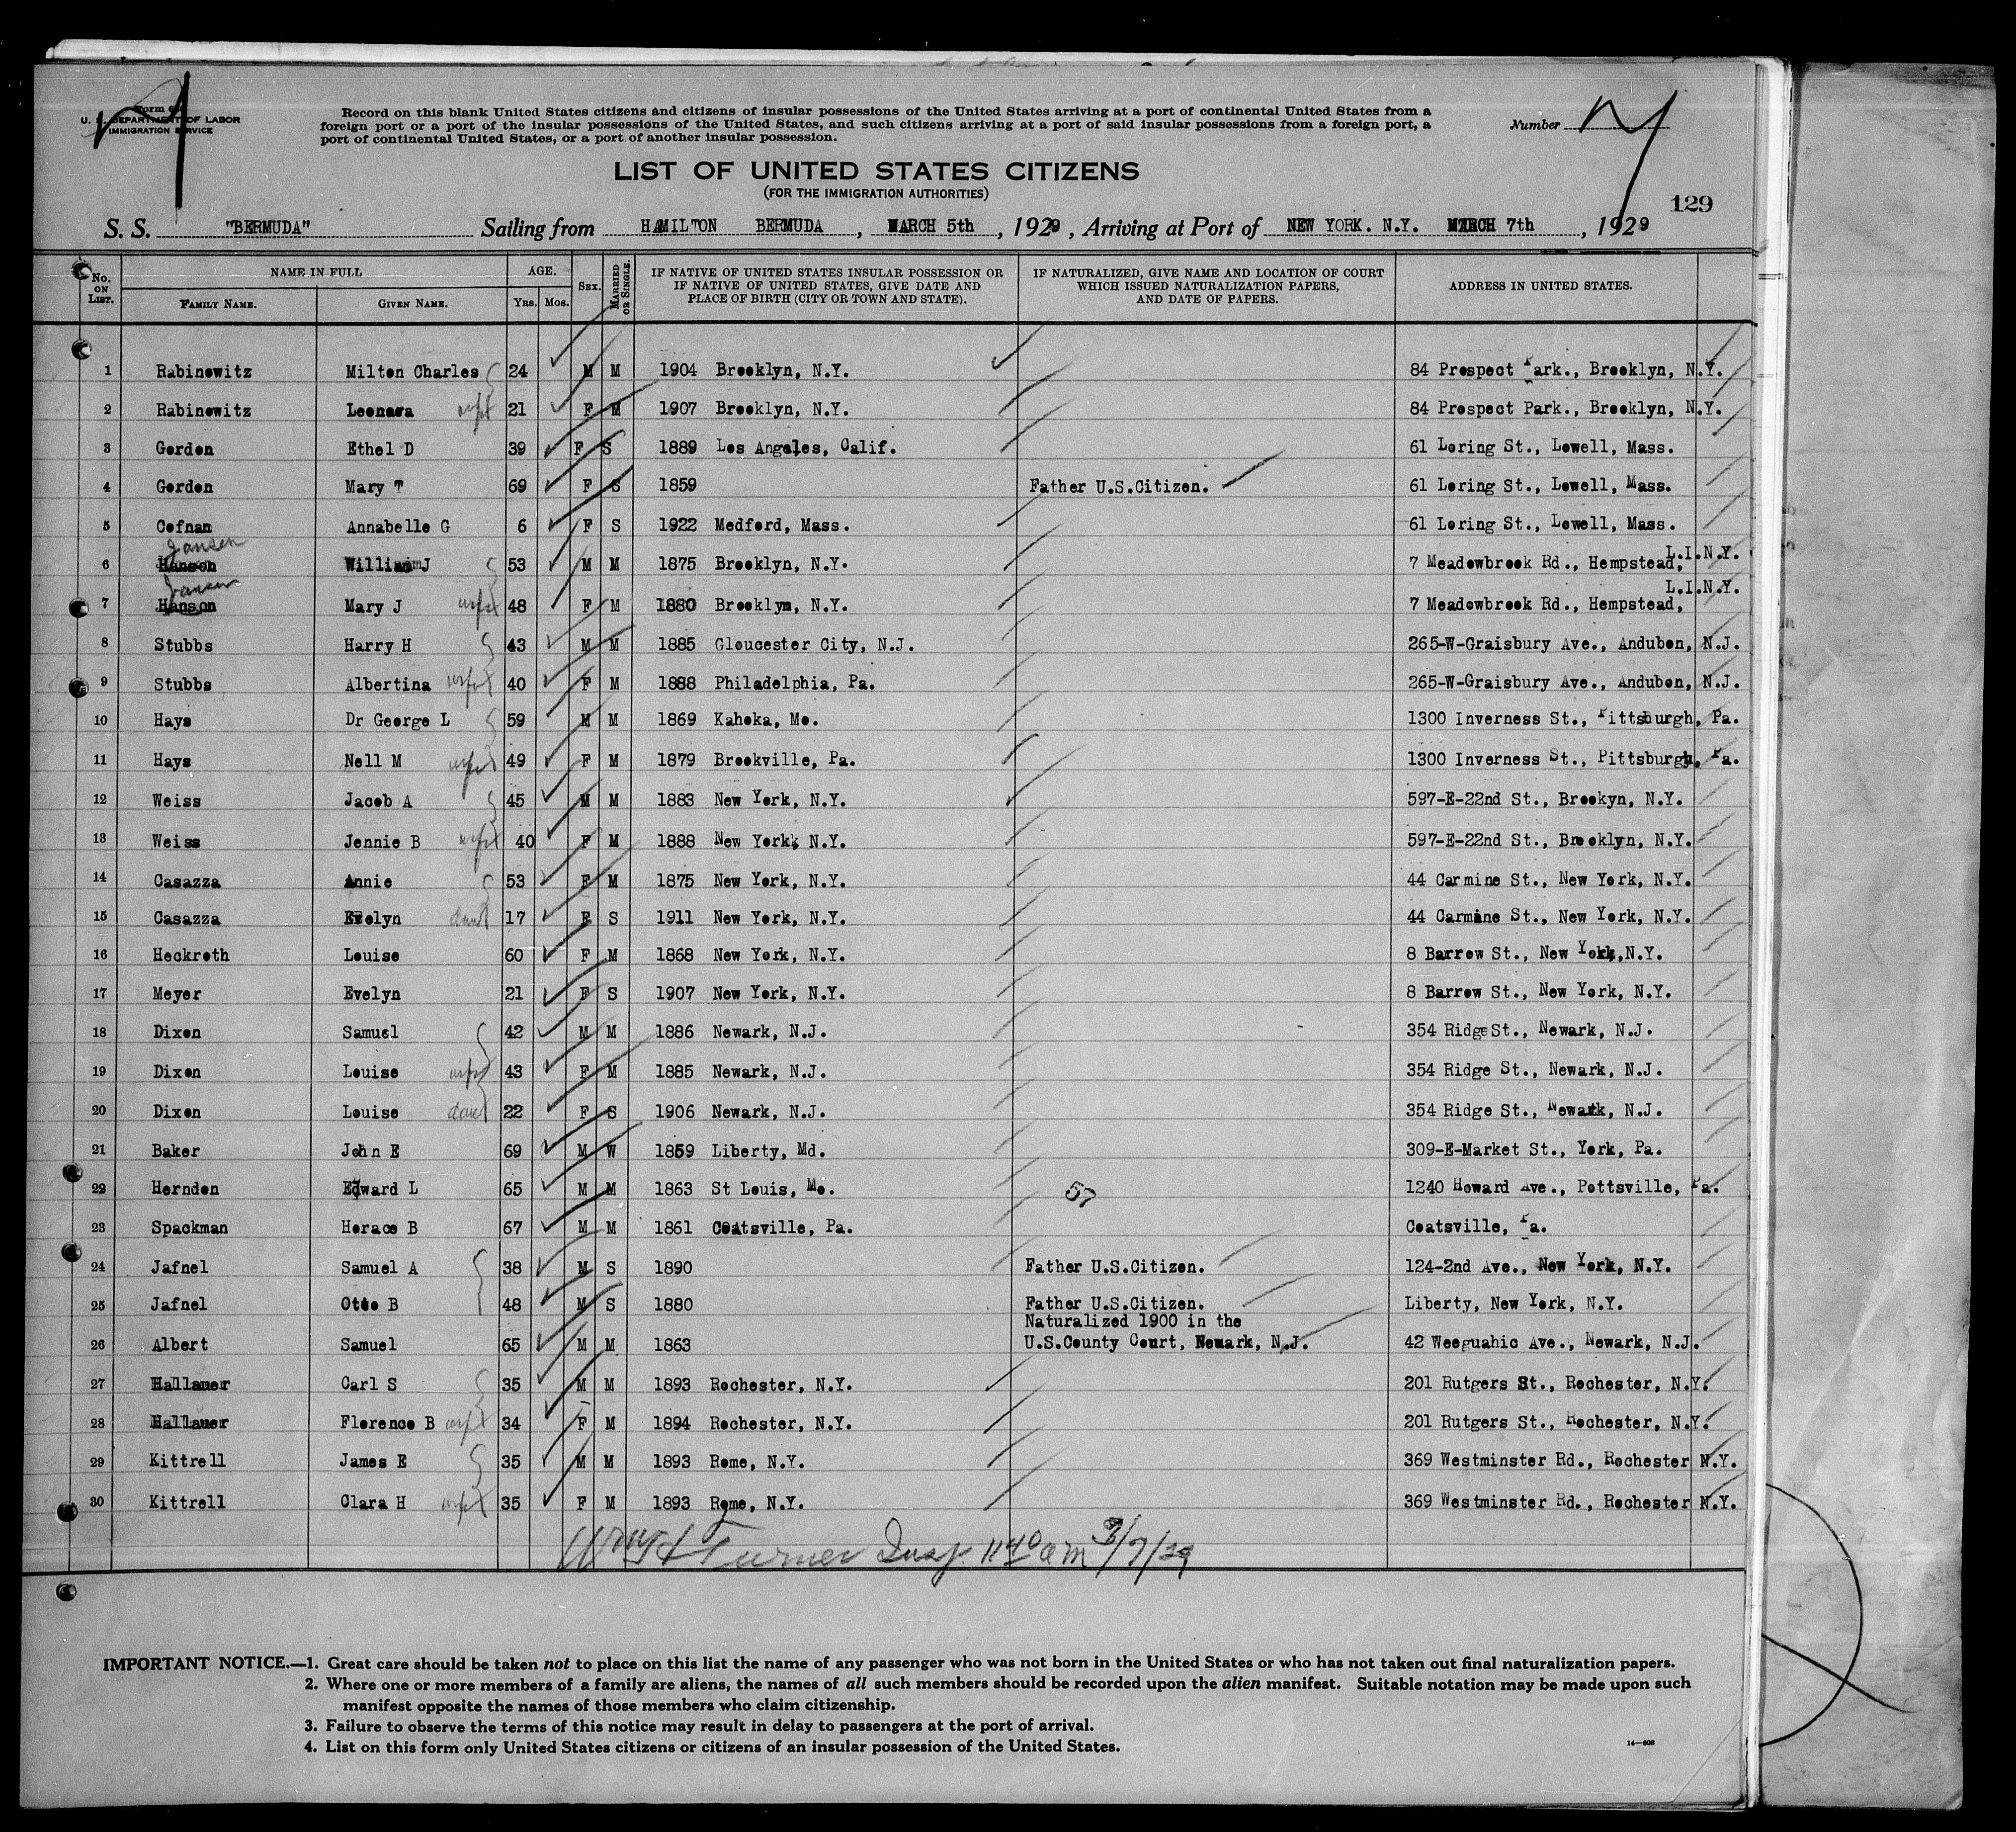 Form 6
U. S. DEPARTMENT OF LABOR
IMMIGRATION SERVICE
Record on this blank United States citizens and citizens of insular possessions of the United States arriving at a port of continental United States from a
foreign port or a port of the insular possessions of the United States, and such citizens arriving at a port of said insular possessions from a foreign port, a
port of continental United States, or a port of another insular possession.
Number
LIST OF UNITED STATES CITIZENS
(FOR THE IMMIGRATION AUTHORITIES)
129
S. S. "BERMUDA" Sailing from HAMILTON BERMUDA, MARCH 5th, 1929, Arriving at Port of NEW YORK. N.Y. MARCH 7th, 1929
No. ON LIST. NAME IN FULL FAMILY NAME. GIVEN NAME. AGE. Yrs. Mos. SEX. MARRIED OR SINGLE. IF NATIVE OF UNITED STATES INSULAR POSSESSION OR IF NATIVE OF UNITED STATES, GIVE DATE AND PLACE OF BIRTH (CITY OR TOWN AND STATE). IF NATURALIZED, GIVE NAME AND LOCATION OF COURT WHICH ISSUED NATURALIZATION PAPERS, AND DATE OF PAPERS. ADDRESS IN UNITED STATES.
1 Rabinowitz Milton Charles 24 M M 1904 Brooklyn, N.Y. 84 Prospect Park., Brooklyn, N.Y.
2 Rabinowitz Leonora wife 21 F M 1907 Brooklyn, N.Y. 84 Prospect Park., Brooklyn, N.Y.
3 Gordon Ethel D 39 F S 1889 Los Angeles, Calif. 61 Loring St., Lowell, Mass.
4 Gordon Mary T 69 F S 1859 Father U.S.Citizen. 61 Loring St., Lowell, Mass.
5 Cofnan Annabelle G 6 F S 1922 Medford, Mass. 61 Loring St., Lowell, Mass.
Jansen
6 Hanson William J 53 M M 1875 Brooklyn, N.Y. 7 Meadowbrook Rd., Hempstead, L.I.N.Y.
Jansen
7 Hanson Mary J wife 48 F M 1880 Brooklyn, N.Y. 7 Meadowbrook Rd., Hempstead, L.I.N.Y.
8 Stubbs Harry H 43 M M 1885 Gloucester City, N.J. 265-W-Graisbury Ave., Andubon, N.J.
9 Stubbs Albertina wife 40 F M 1888 Philadelphia, Pa. 265-W-Graisbury Ave., Andubon, N.J.
10 Hays Dr George L 59 M M 1869 Kahoka, Mo. 1300 Inverness St., Pittsburgh, Pa.
11 Hays Nell M wife 49 F M 1879 Brookville, Pa. 1300 Inverness St., Pittsburgh, Pa.
12 Weiss Jacob A 45 M M 1883 New York, N.Y. 597-E-22nd St., Brookyn, N.Y.
13 Weiss Jennie B wife 40 F M 1888 New York, N.Y. 597-E-22nd St., Brooklyn, N.Y.
14 Casazza Annie 53 F M 1875 New York, N.Y. 44 Carmine St., New York, N.Y.
15 Casazza Evelyn daut 17 F S 1911 New York, N.Y. 44 Carmine St., New York, N.Y.
16 Heckroth Louise 60 F M 1868 New York, N.Y. 8 Barrow St., New York, N.Y.
17 Meyer Evelyn 21 F S 1907 New York, N.Y. 8 Barrow St., New York, N.Y.
18 Dixon Samuel 42 M M 1886 Newark, N.J. 354 Ridge St., Newark, N.J.
19 Dixon Louise wife 43 F M 1885 Newark, N.J. 354 Ridge St., Newark, N.J.
20 Dixon Louise dau 22 F S 1906 Newark, N.J. 354 Ridge St., Newark, N.J.
21 Baker John E 69 M W 1859 Liberty, Md. 309-E-Market St., York, Pa.
22 Herndon Edward L 65 M M 1863 St Louis, Mo. 57 1240 Howard Ave., Pottsville, Pa.
23 Spackman Horace B 67 M M 1861 Coatsville, Pa. Coatsville, Pa.
24 Jafnel Samuel A 38 M S 1890 Father U.S.Citizen. 124-2nd Ave., New York, N.Y.
25 Jafnel Otto B 48 M S 1880 Father U.S.Citizen. Liberty, New York, N.Y.
Naturalized 1900 in the
26 Albert Samuel 65 M M 1863 U.S.County Court, Newark, N.J. 42 Weeguahic Ave., Newark, N.J.
27 Hallauer Carl S 35 M M 1893 Rochester, N.Y. 201 Rutgers St., Rochester, N.Y.
28 Hallauer Florence B wife 34 F M 1894 Rochester, N.Y. 201 Rutgers St., Rochester, N.Y.
29 Kittrell James E 35 M M 1893 Rome, N.Y. 369 Westminster Rd., Rochester N.Y.
30 Kittrell Clara H wife 35 F M 1893 Rome, N.Y. 369 Westminster Rd., Rochester N.Y.
Turner Insp. 11 40 am 3/7/29
IMPORTANT NOTICE.—1. Great care should be taken not to place on this list the name of any passenger who was not born in the United States or who has not taken out final naturalization papers.
2. Where one or more members of a family are aliens, the names of all such members should be recorded upon the alien manifest. Suitable notation may be made upon such
manifest opposite the names of those members who claim citizenship.
3. Failure to observe the terms of this notice may result in delay to passengers at the port of arrival.
4. List on this form only United States citizens or citizens of an insular possession of the United States.
14—608